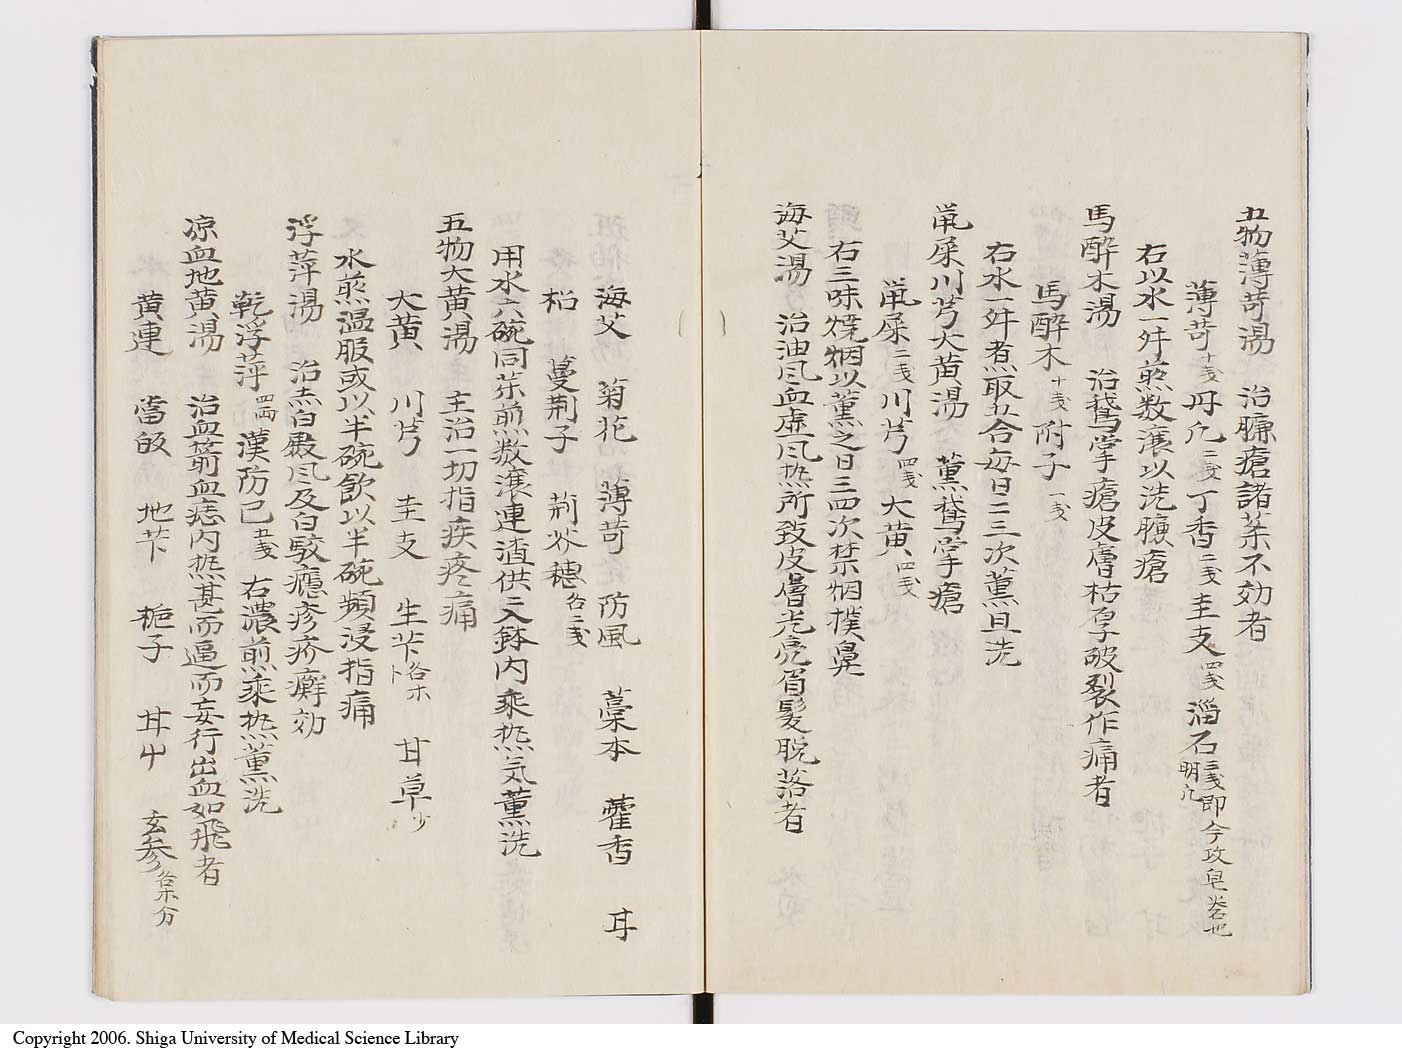 五物薄苛湯　治臁瘡諸茱不効者
薄苛十戔丹凢二戔丁香二戔圭支四戔淄石三戔即今攻皂礬也 明凢
右以水一舛煎数滾以洗臁瘡
馬醉木湯　治鵞掌瘡皮膚枯孚破裂作痛者
馬醉木十戔附子一戔
右水一舛煮取五合每日二三次薫且洗
鼡屎川芎大黄湯　薫鵞掌瘡
鼡屎二戔川芎四戔大黄四戔
右三味燒烟以薫之日三四次禁烟撲鼻
海艾湯　治油風血虚風热所致皮膚光亮眉髮脱落者
海艾　菊花　薄苛　防風　藁本　藿香　甘
松　蔓荆子　荆芥穗各二戔
用水六碗同茶煎数滾連渣供入鉢内乘热気薫洗
五物大黄湯　主治一切指疾疼痛
大黄　川芎　圭支　生芐各木卜　甘草少
水煎温服或以半碗飲以半碗頻浸指痛
浮萍湯　治赤白癜風及白駮癮疹疥癬効
乾浮萍四両漢防已五戔右濃煎乘热薫洗
凉血地黄湯　治血箭血痣内热甚而逼而妄行出血如飛者
黄連　當皈　地芐　梔子　甘中　玄参各木分
Copyright 2006. Shiga University of Medical Science Library